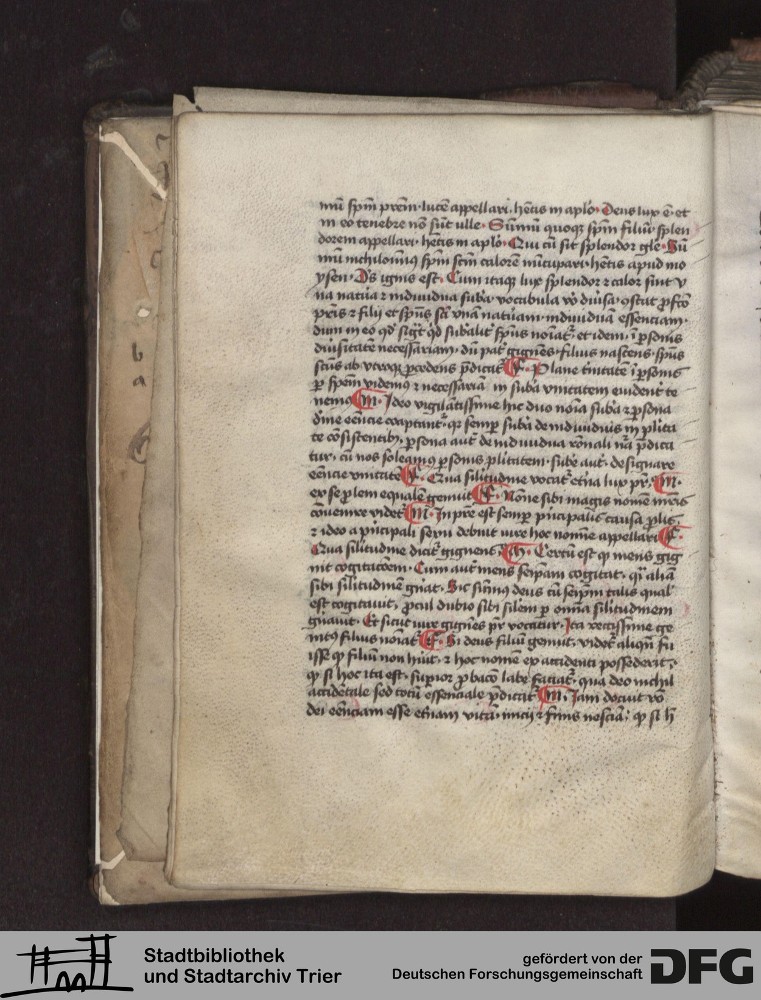 mū spm prem lucē appellari hētis in aplo Deus lux ē et
in eo tenebre nō sūt ulle Sūmū quoqȝ spm filiū splen
dorem appellari hētis in aplo Qui cū sit splendor gle Sū
mū nichilominus spm scm calorem nūcupari hētis apud mo
ysen Ds ignis est Cum itaqȝ lux splendor et calor sint v
na natura et indiuidua suba vocabula vo diuisa
pris et filij et spūs sci vnā naturam indiuiduā essenciam
dum in eo qd sigt qd subalit spūs noiat et idem ī psonis
diuisitate necessariam dū pat gignens filius nascens spūs
scūs ab vtroqȝ pcedens pdicat E Plane tinitatē ī psonis
p spem videmus et necessariā in suba vnitatem euidentr te
nemus M Ideo vigilātissime hic duo noīa suba et psona
semp suba de indiuiduis in plita
te cōsistentibȝ psona aut de indiuidua rōnali na pdica
tur cū nos soleamus psonis plitatem sube aut designare
eēncie vnitatē E Qua silitudine vocat etna lux pr M
ex se plem equalē genuit E Nōne sibi magis nomē mris
conuenire videt M In pre est semp pncipalis causa plis
et ideo a pncipali sexu debuit iure hoc nomine appellari E
Qua silitudine dicit gignens M Certū est qȝ mens gig
nit cogitacōem Cum aut mens seipam cogitat qi aliā
sibi silitudinē gnat Sic sūmus deus cū seipm talis qual
est cogitauit pcul dubio sibi silem p omnia silitudinem
gnauit Et sicut iure gignēs pr vocatur Ita rectissime ge
nitus filius noiat E Si deus filiū genuit videt aliqn fu
isse qȝ filiū non hiuit et hoc nomē ex accidenti possederit
qȝ si hoc ita est supior pbacō labe factat qua deo nichil
accidētale sed totū essenciale pdicat M Iam docuit vo
dei eēnciam esse etnam vitā inicij et finis nesciā qȝ si h
Stadtbibliothek
und Stadtarchiv Trier
gefördert von der
Deutschen Forschungsgemeinschaft
DFG